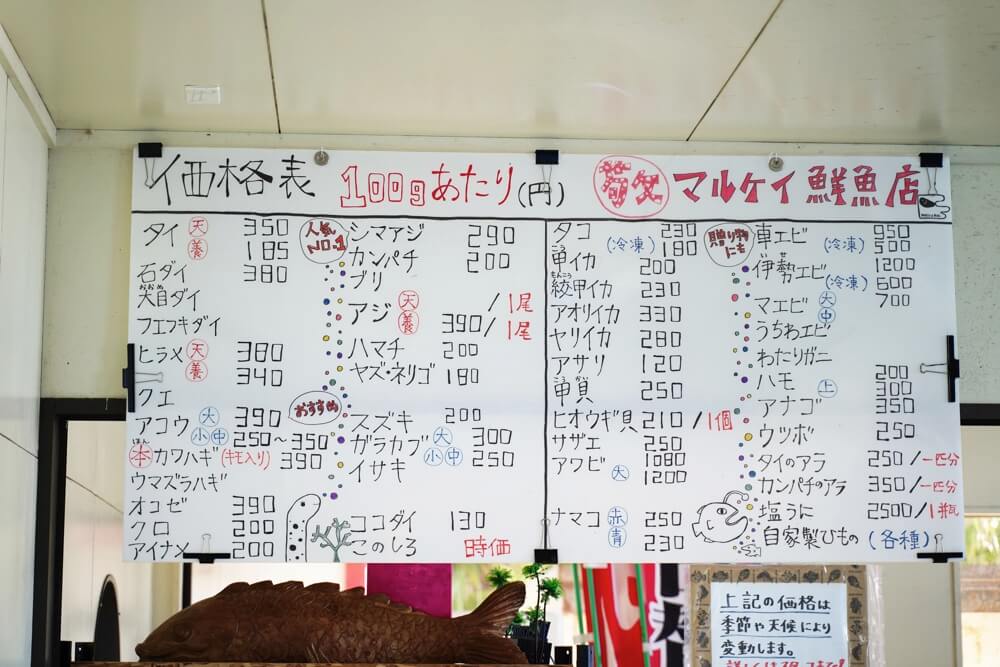 価格表 100gあたり(円)
マルケイ鮮魚店
タイ 天 350
養 185
石ダイ 380
大目ダイ
フエフキダイ
ヒラメ 天 380
養 340
クエ
アコウ 大 390
小中 250~350
本カワハギ(キモ入り) 390
ウマズラハギ
オコゼ 390
クロ 200
アイナメ 200
人気No.1
シマアジ 290
カンパチ 200
ブリ
アジ 天 /1尾
養 390/1尾
ハマチ 200
ヤズ・ネリゴ 180
おすすめ
スズキ 200
ガラカブ 大 300
小中 250
イサキ
ココダイ 130
このしろ 時価
タコ 230
(冷凍) 180
イカ 200
紋甲イカ 230
アオリイカ 330
ヤリイカ 280
アサリ 120
貝 250
ヒオウギ貝 210/1個
サザエ 250
アワビ 1080
大 1200
ナマコ 赤 250
青 230
贈り物にも
車エビ 950
(冷凍) 500
伊勢エビ 1200
(冷凍) 600
マエビ 大 700
中
うちわエビ
わたりガニ
ハモ 200
上 300
アナゴ 350
ウツボ 250
タイのアラ 250/一匹分
カンパチのアラ 350/一匹分
塩うに 2500/1瓶
自家製ひもの(各種)
上記の価格は
季節や天候により
変動します。